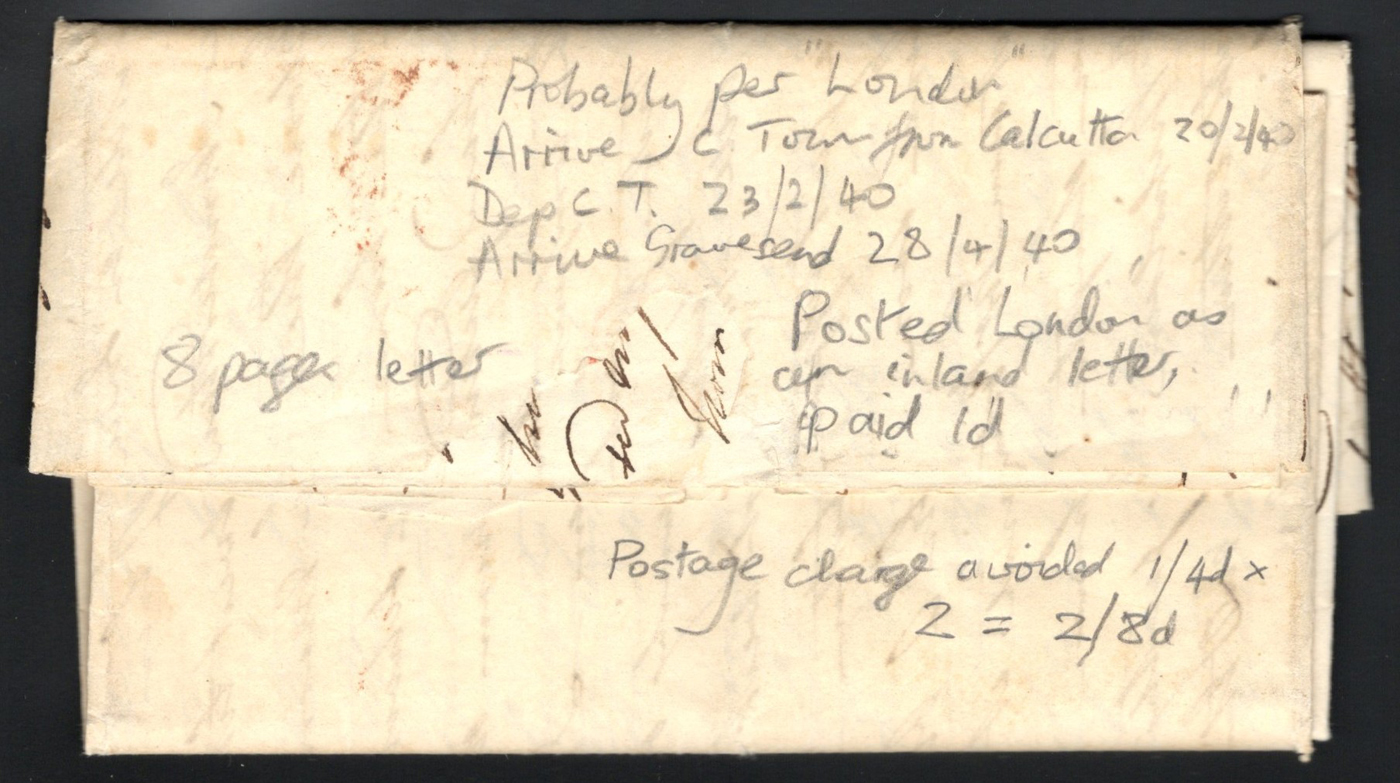 Probably per "London"
Arrive C. Town from Calcutta 20/2/40
Dep C.T. 23/2/40
Arrive Gravesend 28/4/40
8 pages letter
Posted London as
an inland letter,
paid 1d
Postage charge avoided 1/4d x
2 = 2/8d